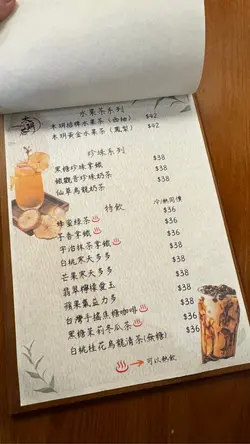 水果茶系列
木玥招牌水果茶（西柚） $42
木玥黃金水果茶（鳳梨） $42
珍珠系列
黑糖珍珠拿鐵 $38
鐵觀音珍珠奶茶 $38
仙草烏龍奶茶 $38
特飲 冷/熱同價
蜂蜜綠茶♨ $36
芋香拿鐵♨ $36
宇治抹茶拿鐵♨ $38
白桃寒天多多 $38
芒果寒天多多 $38
翡翠檸檬愛玉 $38
蘋果氣益力多 $38
台灣手搖焦糖咖啡♨ $38
黑糖茉莉冬瓜茶♨ $36
白桃桂花烏龍清茶(無糖) $36
♨ → 可以熱飲